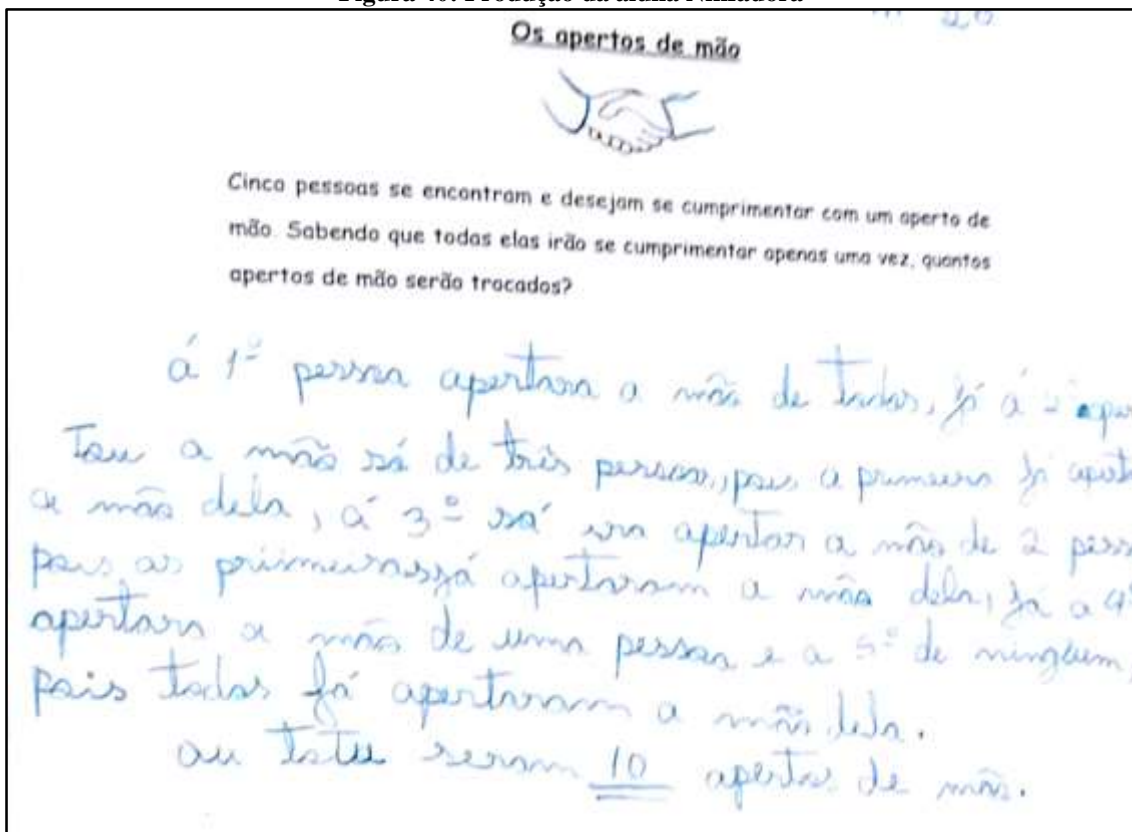 Os apertos de mão
Cinco pessoas se encontram e desejam se cumprimentar com um aperto de
mão. Sabendo que todas elas irão se cumprimentar apenas uma vez, quantos
apertos de mão serão trocados?
á 1º pessoa apertara a mão de todos, já á 2º aper
Tou a mão só de três pessoas, pois a primeira já apert
a mão dela, á 3º só ira apertar a mão de 2 pess
pois as primeiras já apertaram a mão dela, já a 4º
apertara a mão de uma pessoa e a 5º de ninguem,
pois todos já apertaram a mão dela.
au totu seram 10 apertos de mão.